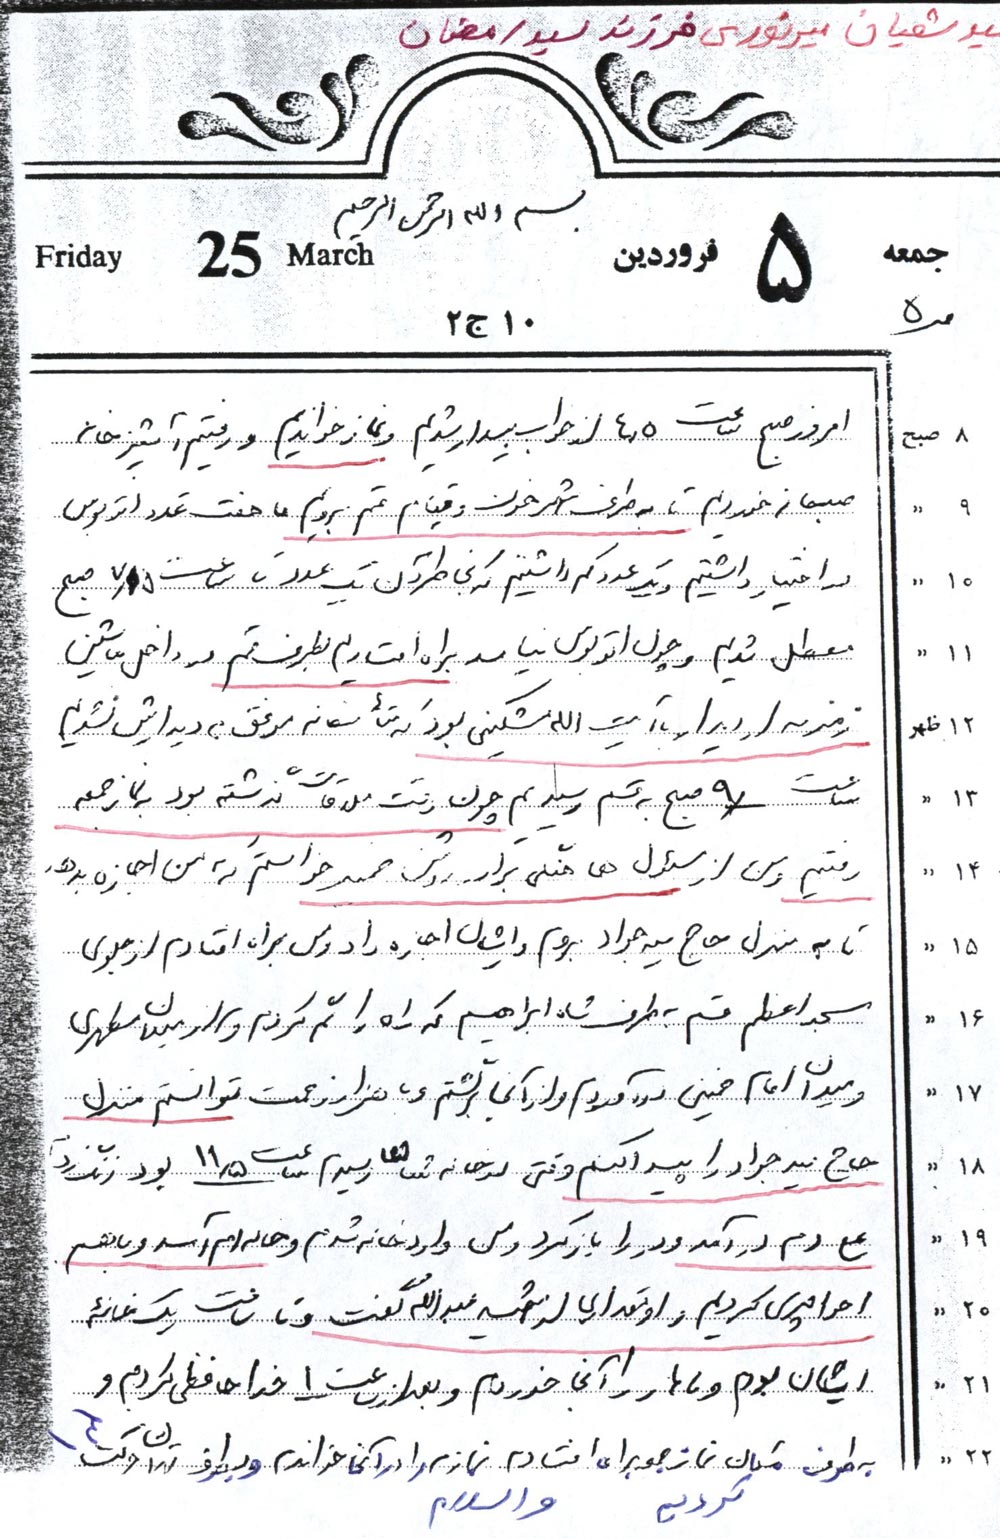 سید شعبان میرنوری فرزند سید رمضان
بسم الله الرحمن الرحیم
جمعه ۵ فروردین March 25 Friday
۱۰ ج۲
۸ صبح امروز صبح ساعت ۴،۵ از خواب بیدار شدیم و نماز خواندیم و رفتیم آشپزخانه
۹ " صبحانه خوردیم تا به طرف شهر خون و قیام قم برویم ما هفت عدد اتوبوس
۱۰ " در اختیار داشتیم و یک عدد کم داشتیم که بخاطر آن یک عدد تا ساعت ۷/۵ صبح
۱۱ " معطل شدیم و چون اتوبوس نیامد براه افتادیم بطرف قم در داخل ماشین
۱۲ ظهر دیدار با آیت الله مشکینی بود که متأسفانه موفق به دیدارش نشدیم
۱۳ " ساعت ۹ صبح به قم رسیدیم چون وقت ملاقات گذشته بود به نماز جمعه
۱۴ " رفتیم و من از مسئول خواستم که به من اجازه بدهد
۱۵ " تا به منزل حاج سید جواد بروم و ایشان اجازه داد و من براه افتادم از جلوی
۱۶ " مسجد اعظم قم به طرف شاه ابراهیم که راه را گم کردم و از میدان مطهری
۱۷ " و میدان امام خمینی در آوردم و از آنجا برگشتم و با هزار زحمت توانستم منزل
۱۸ " حاج سید جواد را پیدا کنم وقتی در خانه رسیدم ساعت ۱۱/۵ بود زنگ زدم
۱۹ " دم در آمد و در را باز کرد و من وارد خانه شدم و خانم آمد و با هم
۲۰ " احوالپرسی کردیم و او از عبدالله گفت و تا ساعت یک خانه
۲۱ " ایشان بودم و ناهار را آنجا خوردم و بعد از ساعت ۱ خدا حافظی کردم و
۲۲ " به طرف نماز جمعه براه افتادم نمازم را در آنجا خواندم و بطرف تهران حرکت
کردیم والسلام